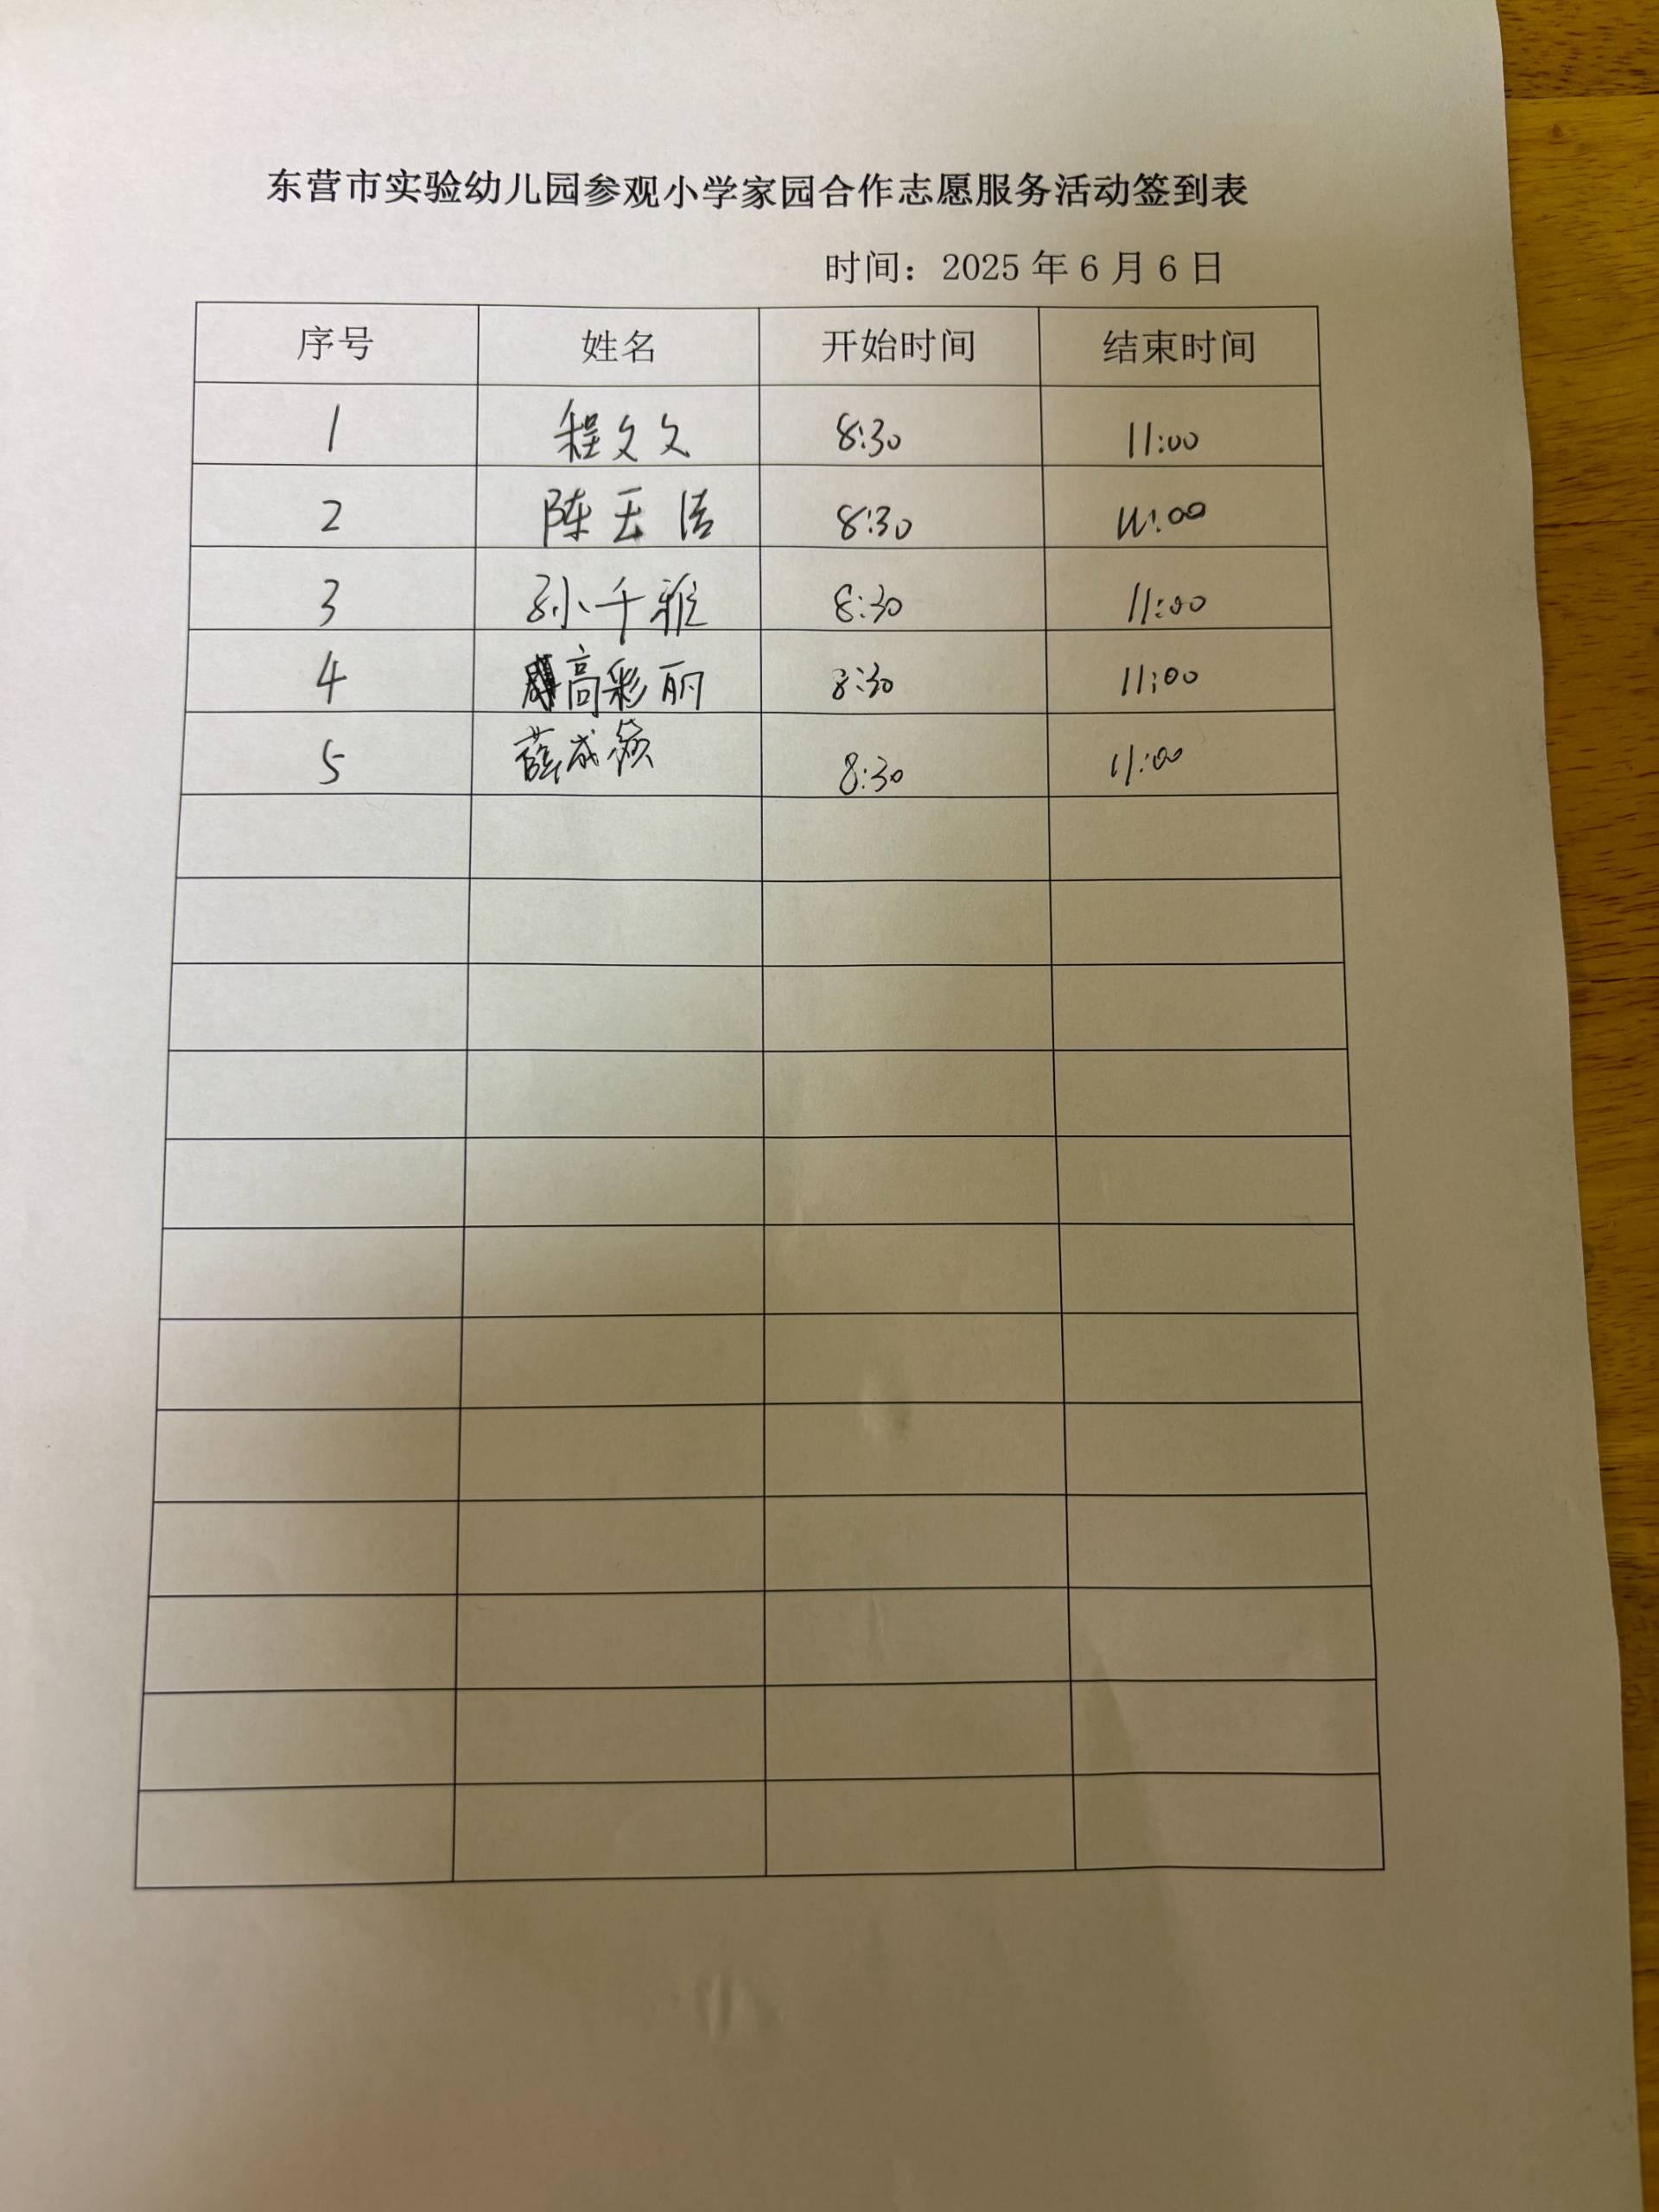 东营市实验幼儿园参观小学家园合作志愿服务活动签到表
时间：2025年6月6日
序号 姓名 开始时间 结束时间
1 程文文 8:30 11:00
2 陈玉洁 8:30 11:00
3 孙千雅 8:30 11:00
4 高彩丽 8:30 11:00
5 薛成 8:30 11:00